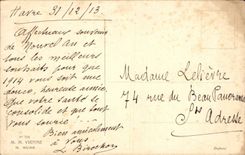 Havre 31/12/13
Affectueux souvenir
de Nouvel An et tous
les meilleurs
souhaits pour que
1914 vous soit une
douce, heureuse année,
que votre santé se
consolide et que tout
vous sourie
Bien amicalement
à Vous
L. Brochon
Madame Lelièvre
74 rue du Beau Panorama
Ste Adresse
M. M. VIENNE